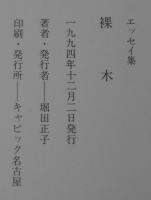 エッセイ集
裸木
一九九四年十二月二日発行
著者・発行者──堀田正子
印刷・発行所──キャビック名古屋